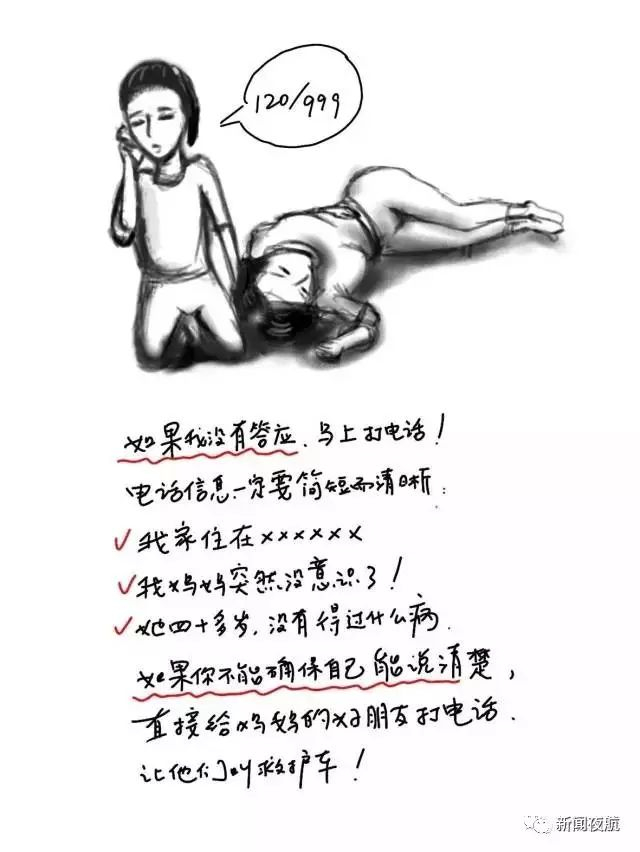 120/999
如果我没有答应、马上打电话！
电话信息一定要简短而清晰：
✓我家住在××××××
✓我妈妈突然没意识了！
✓她四十多岁，没有得过什么病.
如果你不能确保自己能说清楚，
直接给妈妈的好朋友打电话.
让他们叫救护车！
新闻夜航